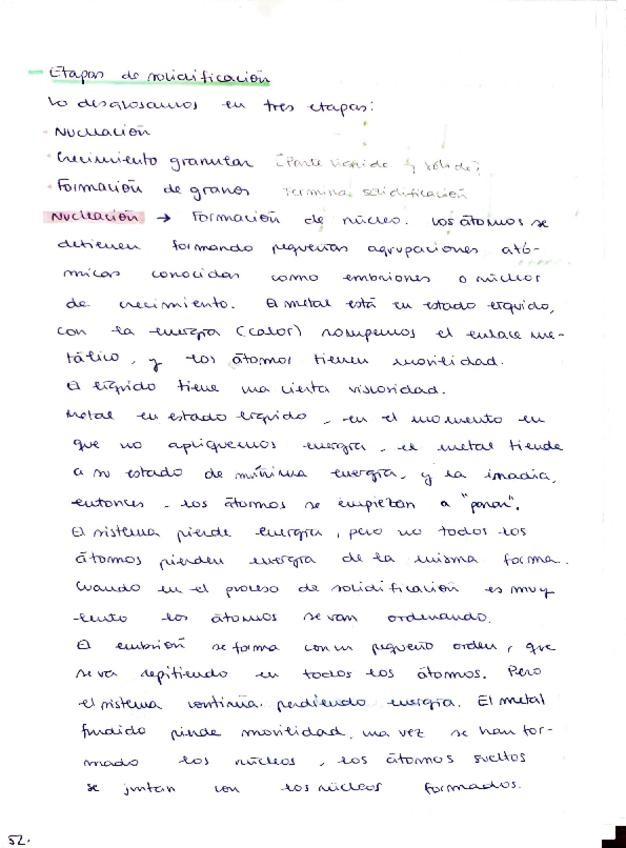 - Etapas de solidificación
Lo desglosamos en tres etapas:
· Nucleación
· Crecimiento granular (Parte líquida y sólida)
· Formación de granos Termina solidificación
Nucleación → Formación de núcleo. Los átomos se
detienen formando pequeñas agrupaciones ató-
micas conocidas como embriones o núcleos
de crecimiento. El metal está en estado líquido,
con la energía (calor) rompemos el enlace me-
tálico, y los átomos tienen movilidad.
El líquido tiene una cierta viscosidad.
Metal en estado líquido, en el momento en
que no apliquemos energía, el metal tiende
a su estado de mínima energía, y la irradia,
entonces, los átomos se empiezan a "parar".
El sistema pierde energía, pero no todos los
átomos pierden energía de la misma forma.
Cuando en el proceso de solidificación es muy
lento los átomos se van ordenando.
El embrión se forma con un pequeño orden, que
se va repitiendo en todos los átomos. Pero
el sistema continúa perdiendo energía. El metal
fundido pierde movilidad, una vez se han for-
mado los núcleos, los átomos sueltos
se juntan con los núcleos formados.
52.